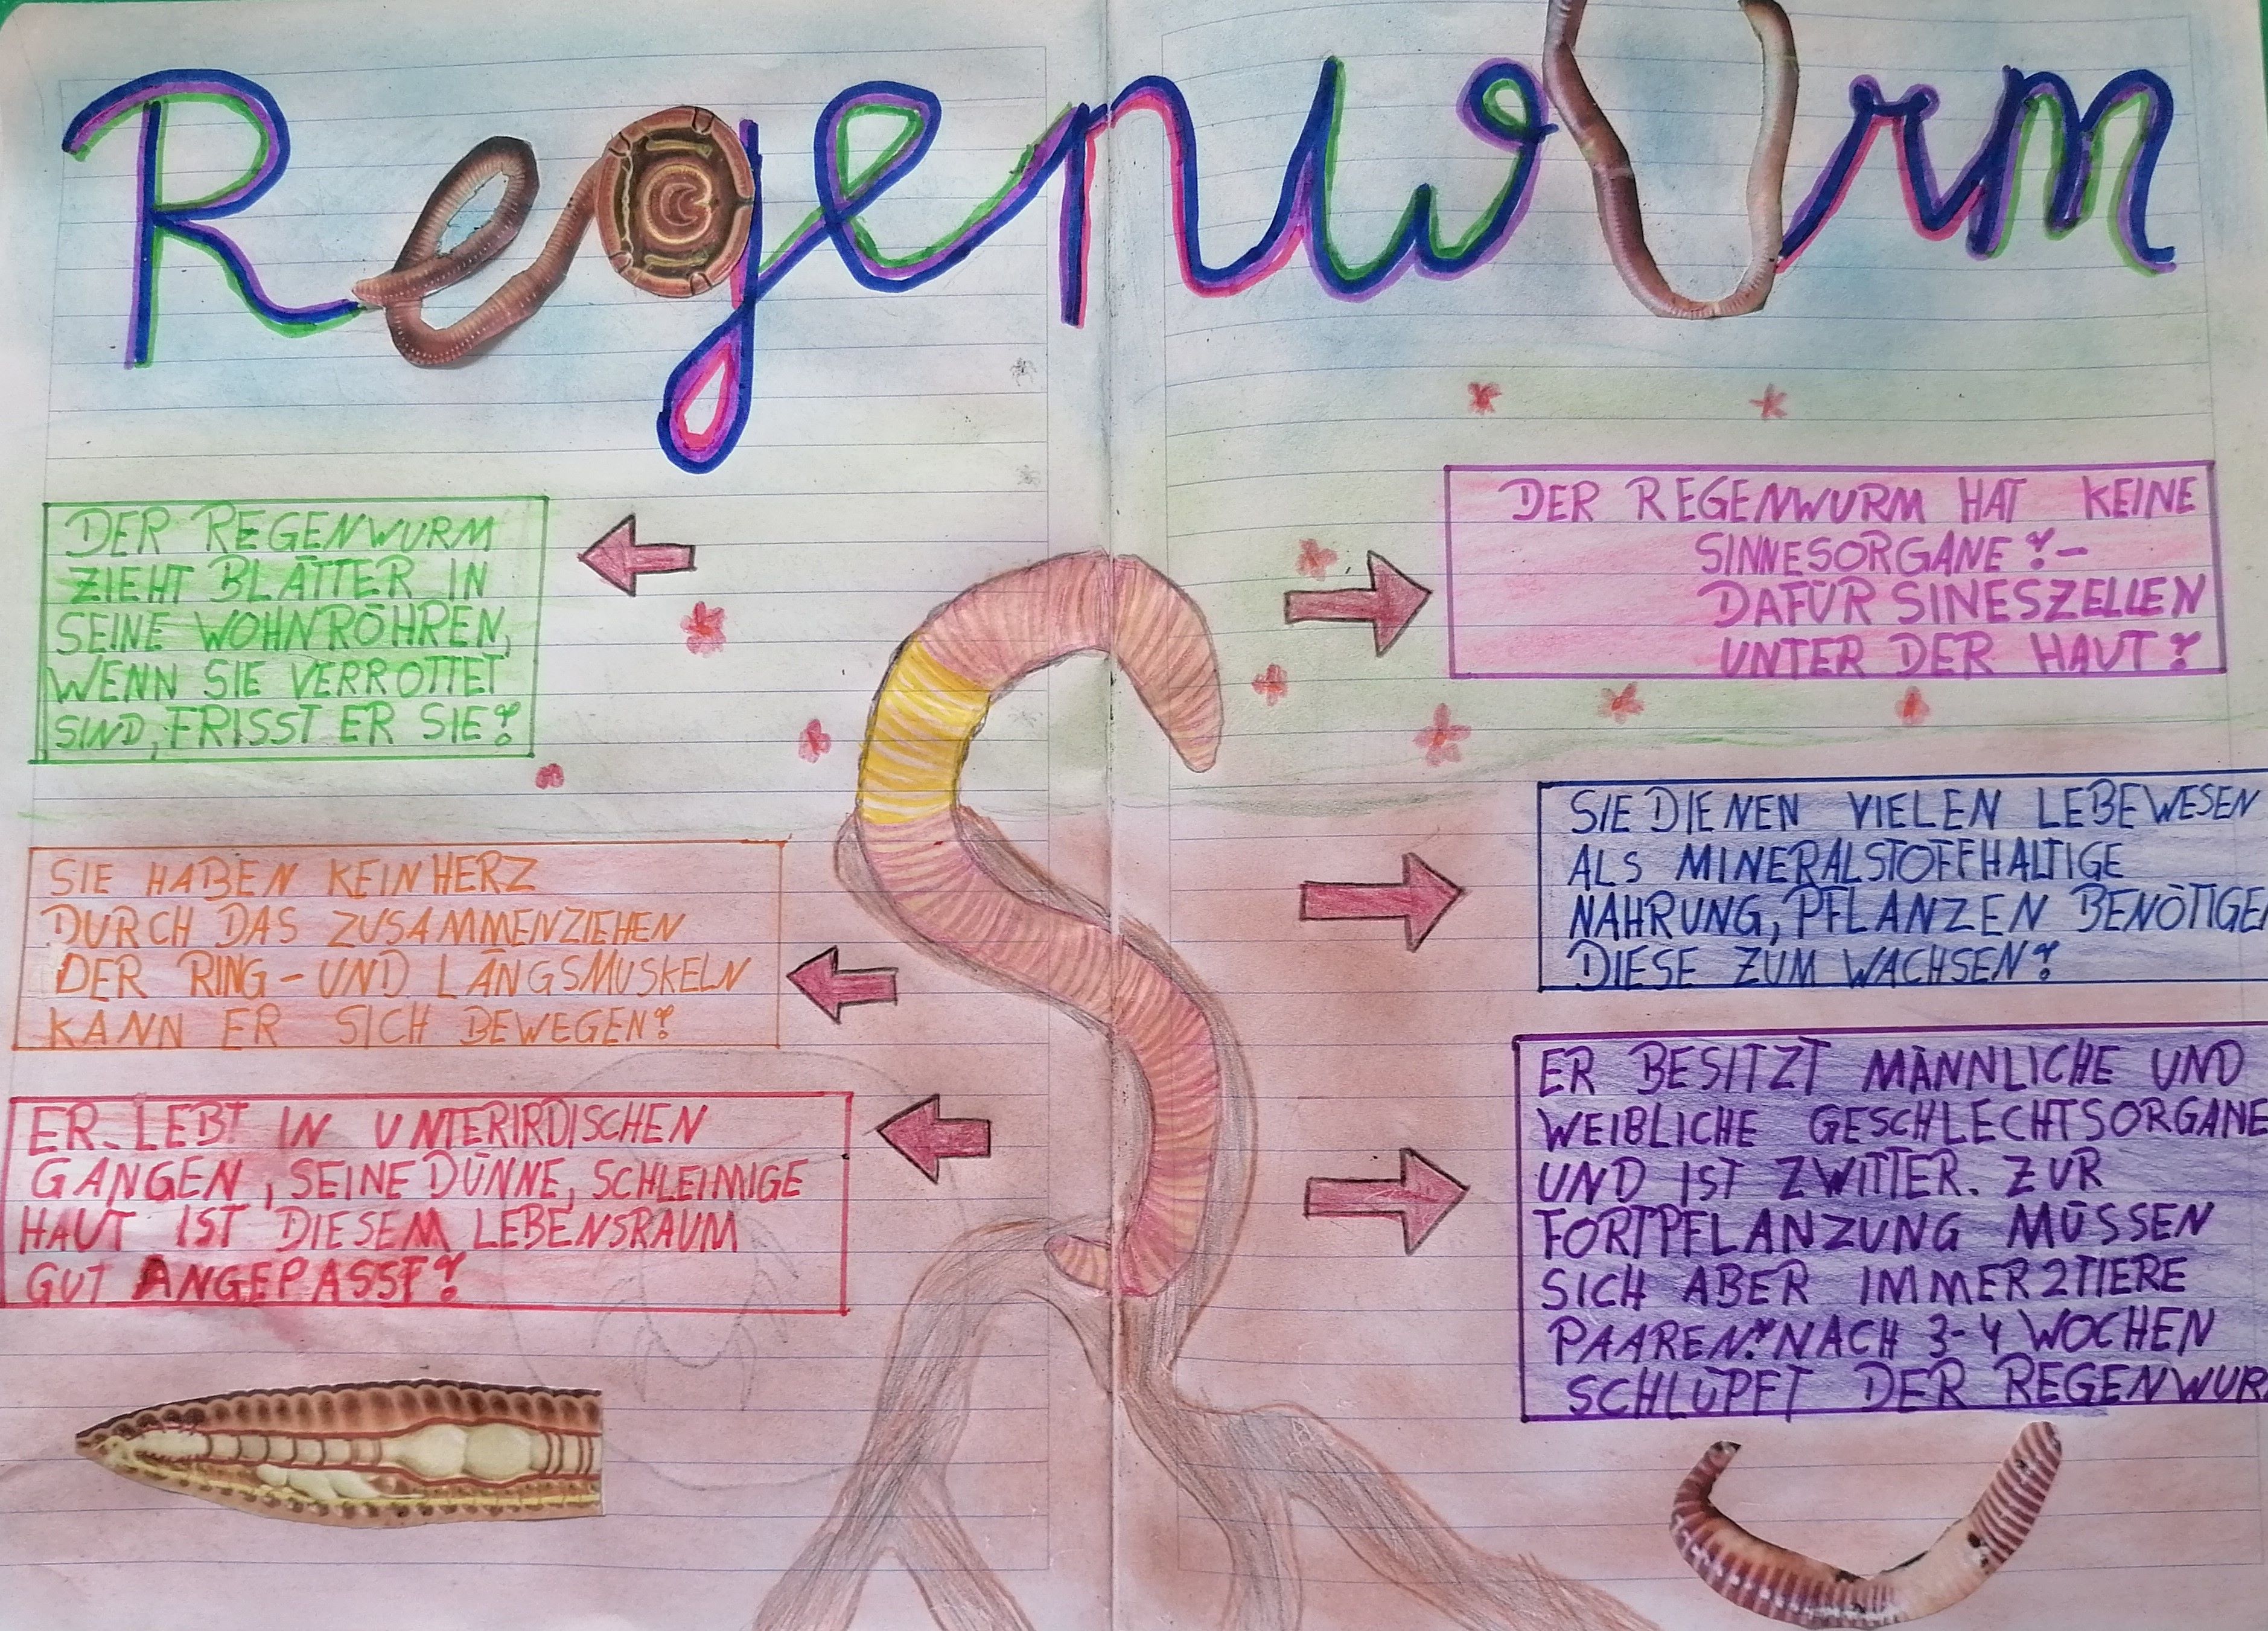 Regenwurm
DER REGENWURM
ZIEHT BLÄTTER IN
SEINE WOHNRÖHREN,
WENN SIE VERROTTET
SIND, FRISST ER SIE!
SIE HABEN KEIN HERZ
DURCH DAS ZUSAMMENZIEHEN
DER RING- UND LÄNGSMUSKELN
KANN ER SICH BEWEGEN!
ER LEBT IN UNTERIRDISCHEN
GANGEN, SEINE DÜNNE, SCHLEIMIGE
HAUT IST DIESEM LEBENSRAUM
GUT ANGEPASST!
DER REGENWURM HAT KEINE
SINNESORGANE! -
DAFÜR SINESZELLEN
UNTER DER HAUT!
SIE DIENEN VIELEN LEBEWESEN
ALS MINERALSTOFFHALTIGE
NAHRUNG, PFLANZEN BENÖTIGE
DIESE ZUM WACHSEN!
ER BESITZT MÄNNLICHE UND
WEIBLICHE GESCHLECHTSORGANE
UND IST ZWITTER. ZUR
FORTPFLANZUNG MÜSSEN
SICH ABER IMMER 2 TIERE
PAAREN! NACH 3-4 WOCHEN
SCHLÜPFT DER REGENWUR